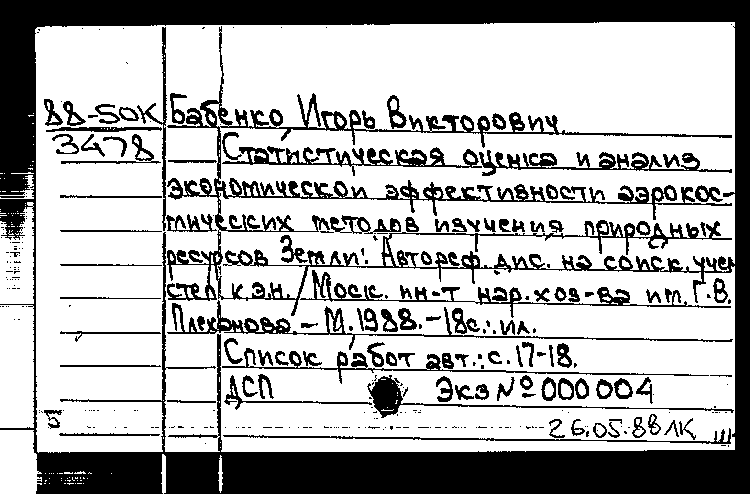 88-50К Бабенко Игорь Викторович.
3478 Статистическая оценка и анализ
экономической эффективности аэрокос-
мических методов изучения природных
ресурсов Земли: Автореф. дис. на соиск. учен
степ. к.э.н. / Моск. ин-т нар. хоз-ва им. Г.В.
Плеханова. - М. 1988. - 18с.: ил.
Список работ авт.: с. 17-18.
ДСП Экз № 000004
26.05.88 ЛК